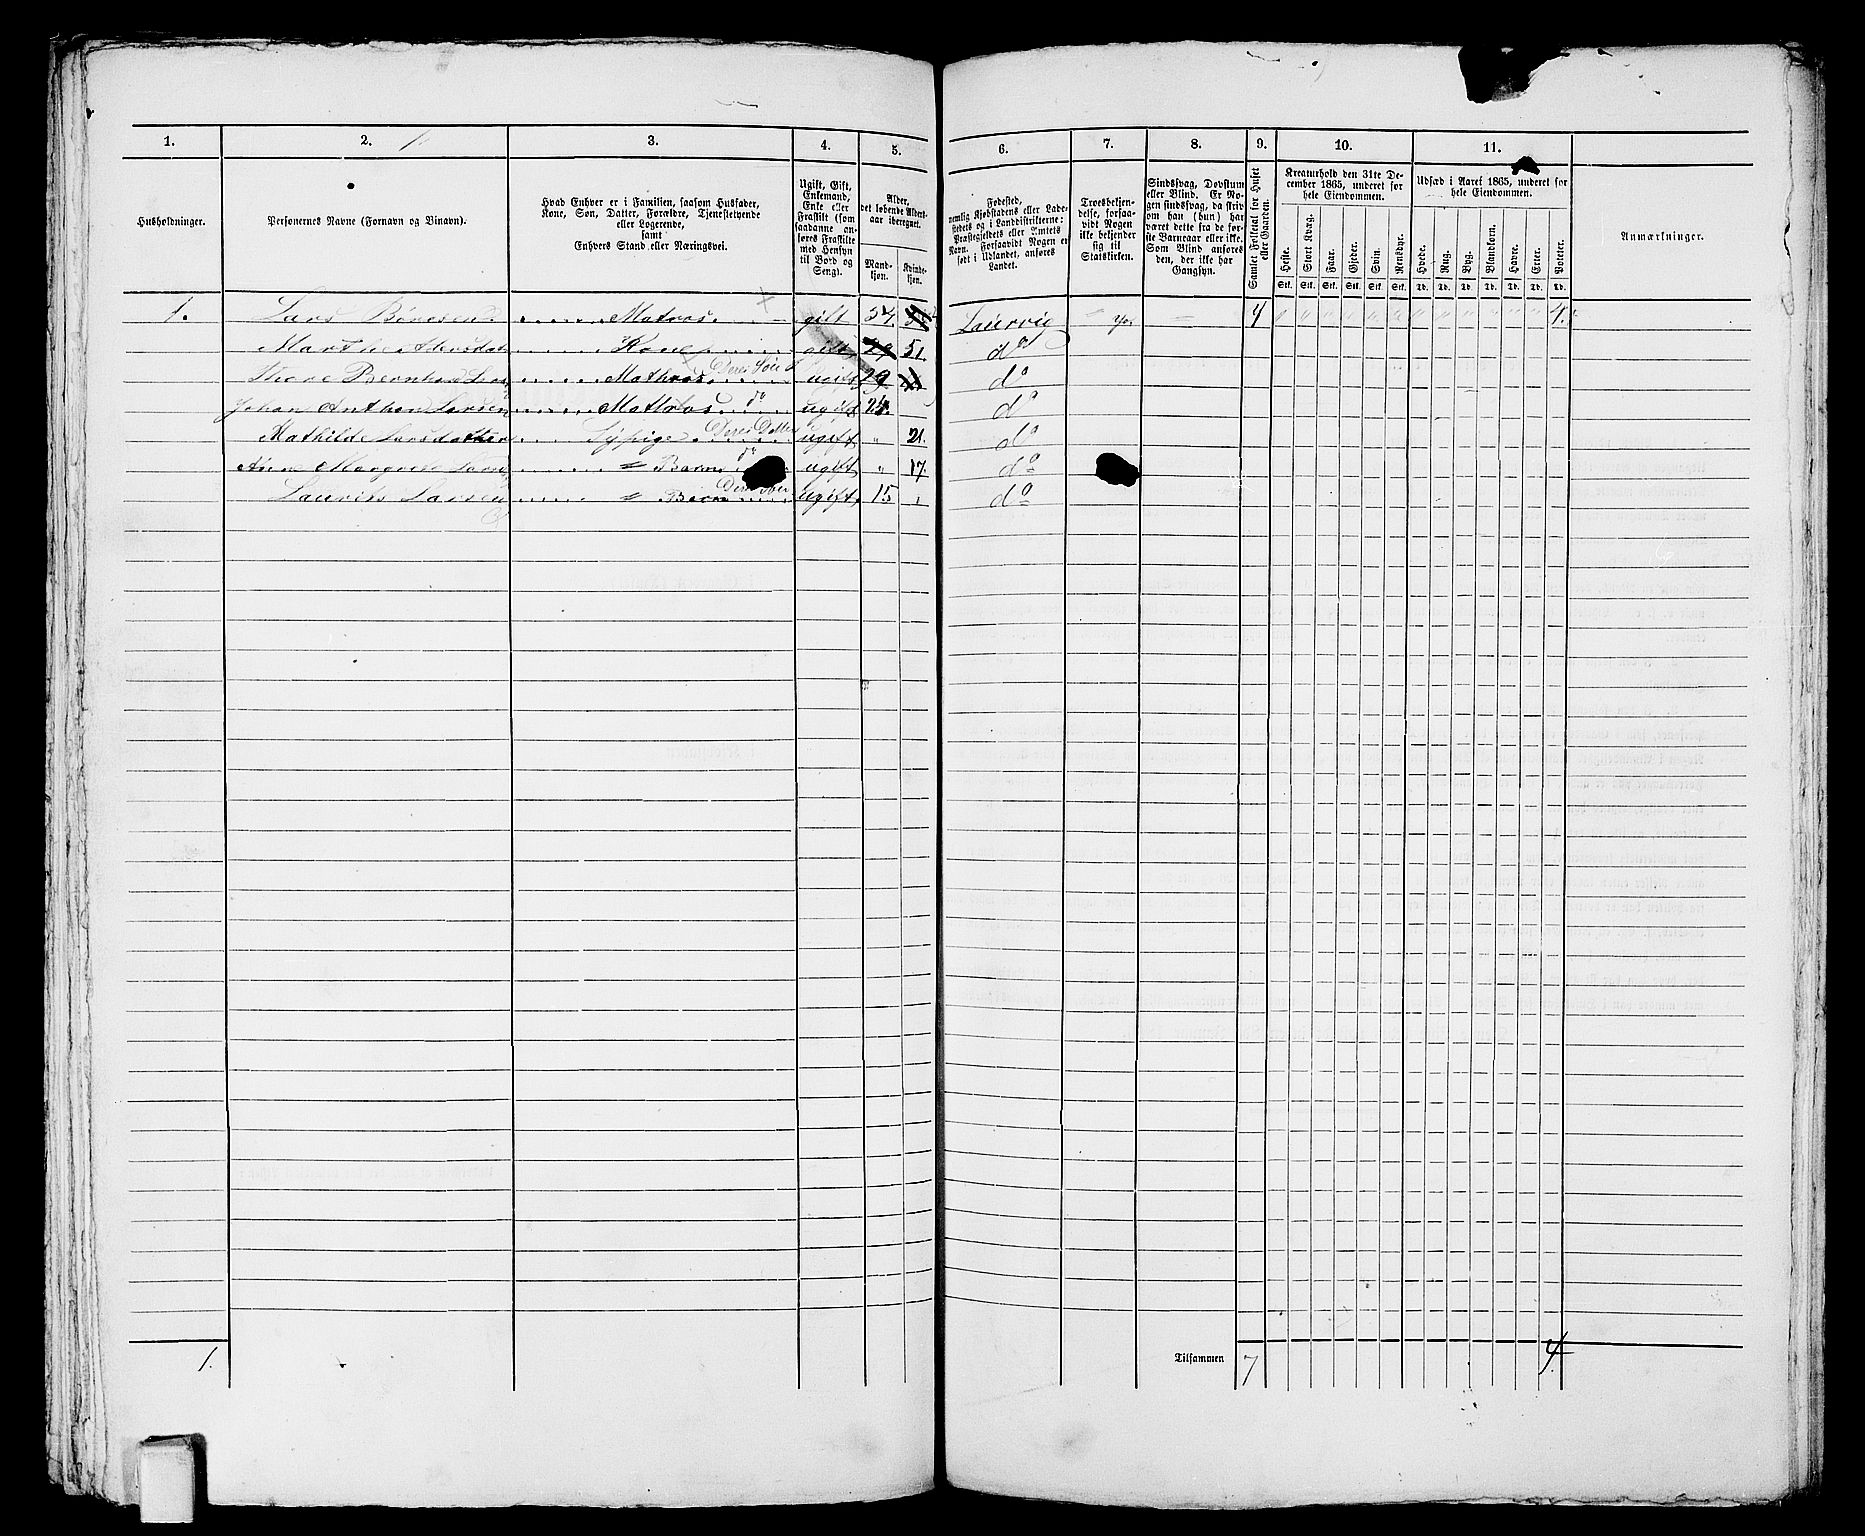 1. 2. 3. 4. 5. 6. 7. 8. 9. 10. 11.
Husholdninger.
Personernes Navne (Fornavn og Binavn).
Hvad Enhver er i Familien, saasom Husfader,
Kone, Søn, Datter, Forældre, Tjenstetyende
eller Logerende,
samt
Enhvers Stand eller Næringsvei.
Ugift, Gift,
Enkemand,
Enke eller
Fraskilt (som
saadanne an-
føres Fraskilte
med Hensyn
til Bord og
Seng).
Alder,
det løbende Alders-
aar iberegnet.
Mand-
kjøn.
Kvinde-
kjøn.
Fødested,
nemlig Kjøbstadens eller Lade-
stedets og i Landdistrikterne:
Præstegjeldets eller Amtets
Navn. Forsaavidt Nogen er
født i Udlandet, anføres
Landet.
Troesbekjen-
delse, forsaa-
vidt Nogen
ikke bekjender
sig til
Statskirken.
Sindssvag, Døvstum
eller Blind. Er No-
gen sindssvag, da skriv
om han (hun) har
været dette fra de før-
ste Barneaar eller ikke.
Som Blind anføres
den, der ikke har
Gangsyn.
Samlet Folketal for Huset
eller Gaarden.
Kreaturhold den 31te De-
cember 1865, underet for
hele Eiendommen.
Heste. Stort Kvæg. Faar. Gjeder. Svin. Rensdyr.
Stk. Stk. Stk. Stk. Stk. Stk.
Udsæd i Aaret 1865, underet for
hele Eiendommen.
Hvede. Rug. Byg. Blandkorn. Havre. Erter. Poteter.
Td. Td. Td. Td. Td. Td. Td.
Anmærkninger.
1. Lars Matros. gift 54. Laurvig 4.
Marthe Kone gift 51. do
Bernhard Mathros. Deres Søn ugift 29 do
Johan Anthon Larsen Mattros do ugift 24. do
Mathilde Larsdatter Sypige Deres Datter ugift " 21. do
Barn do ugift " 17. do
Laurits Larsen " Barn ugift. 15 do
1. Tilsammen 7 4.